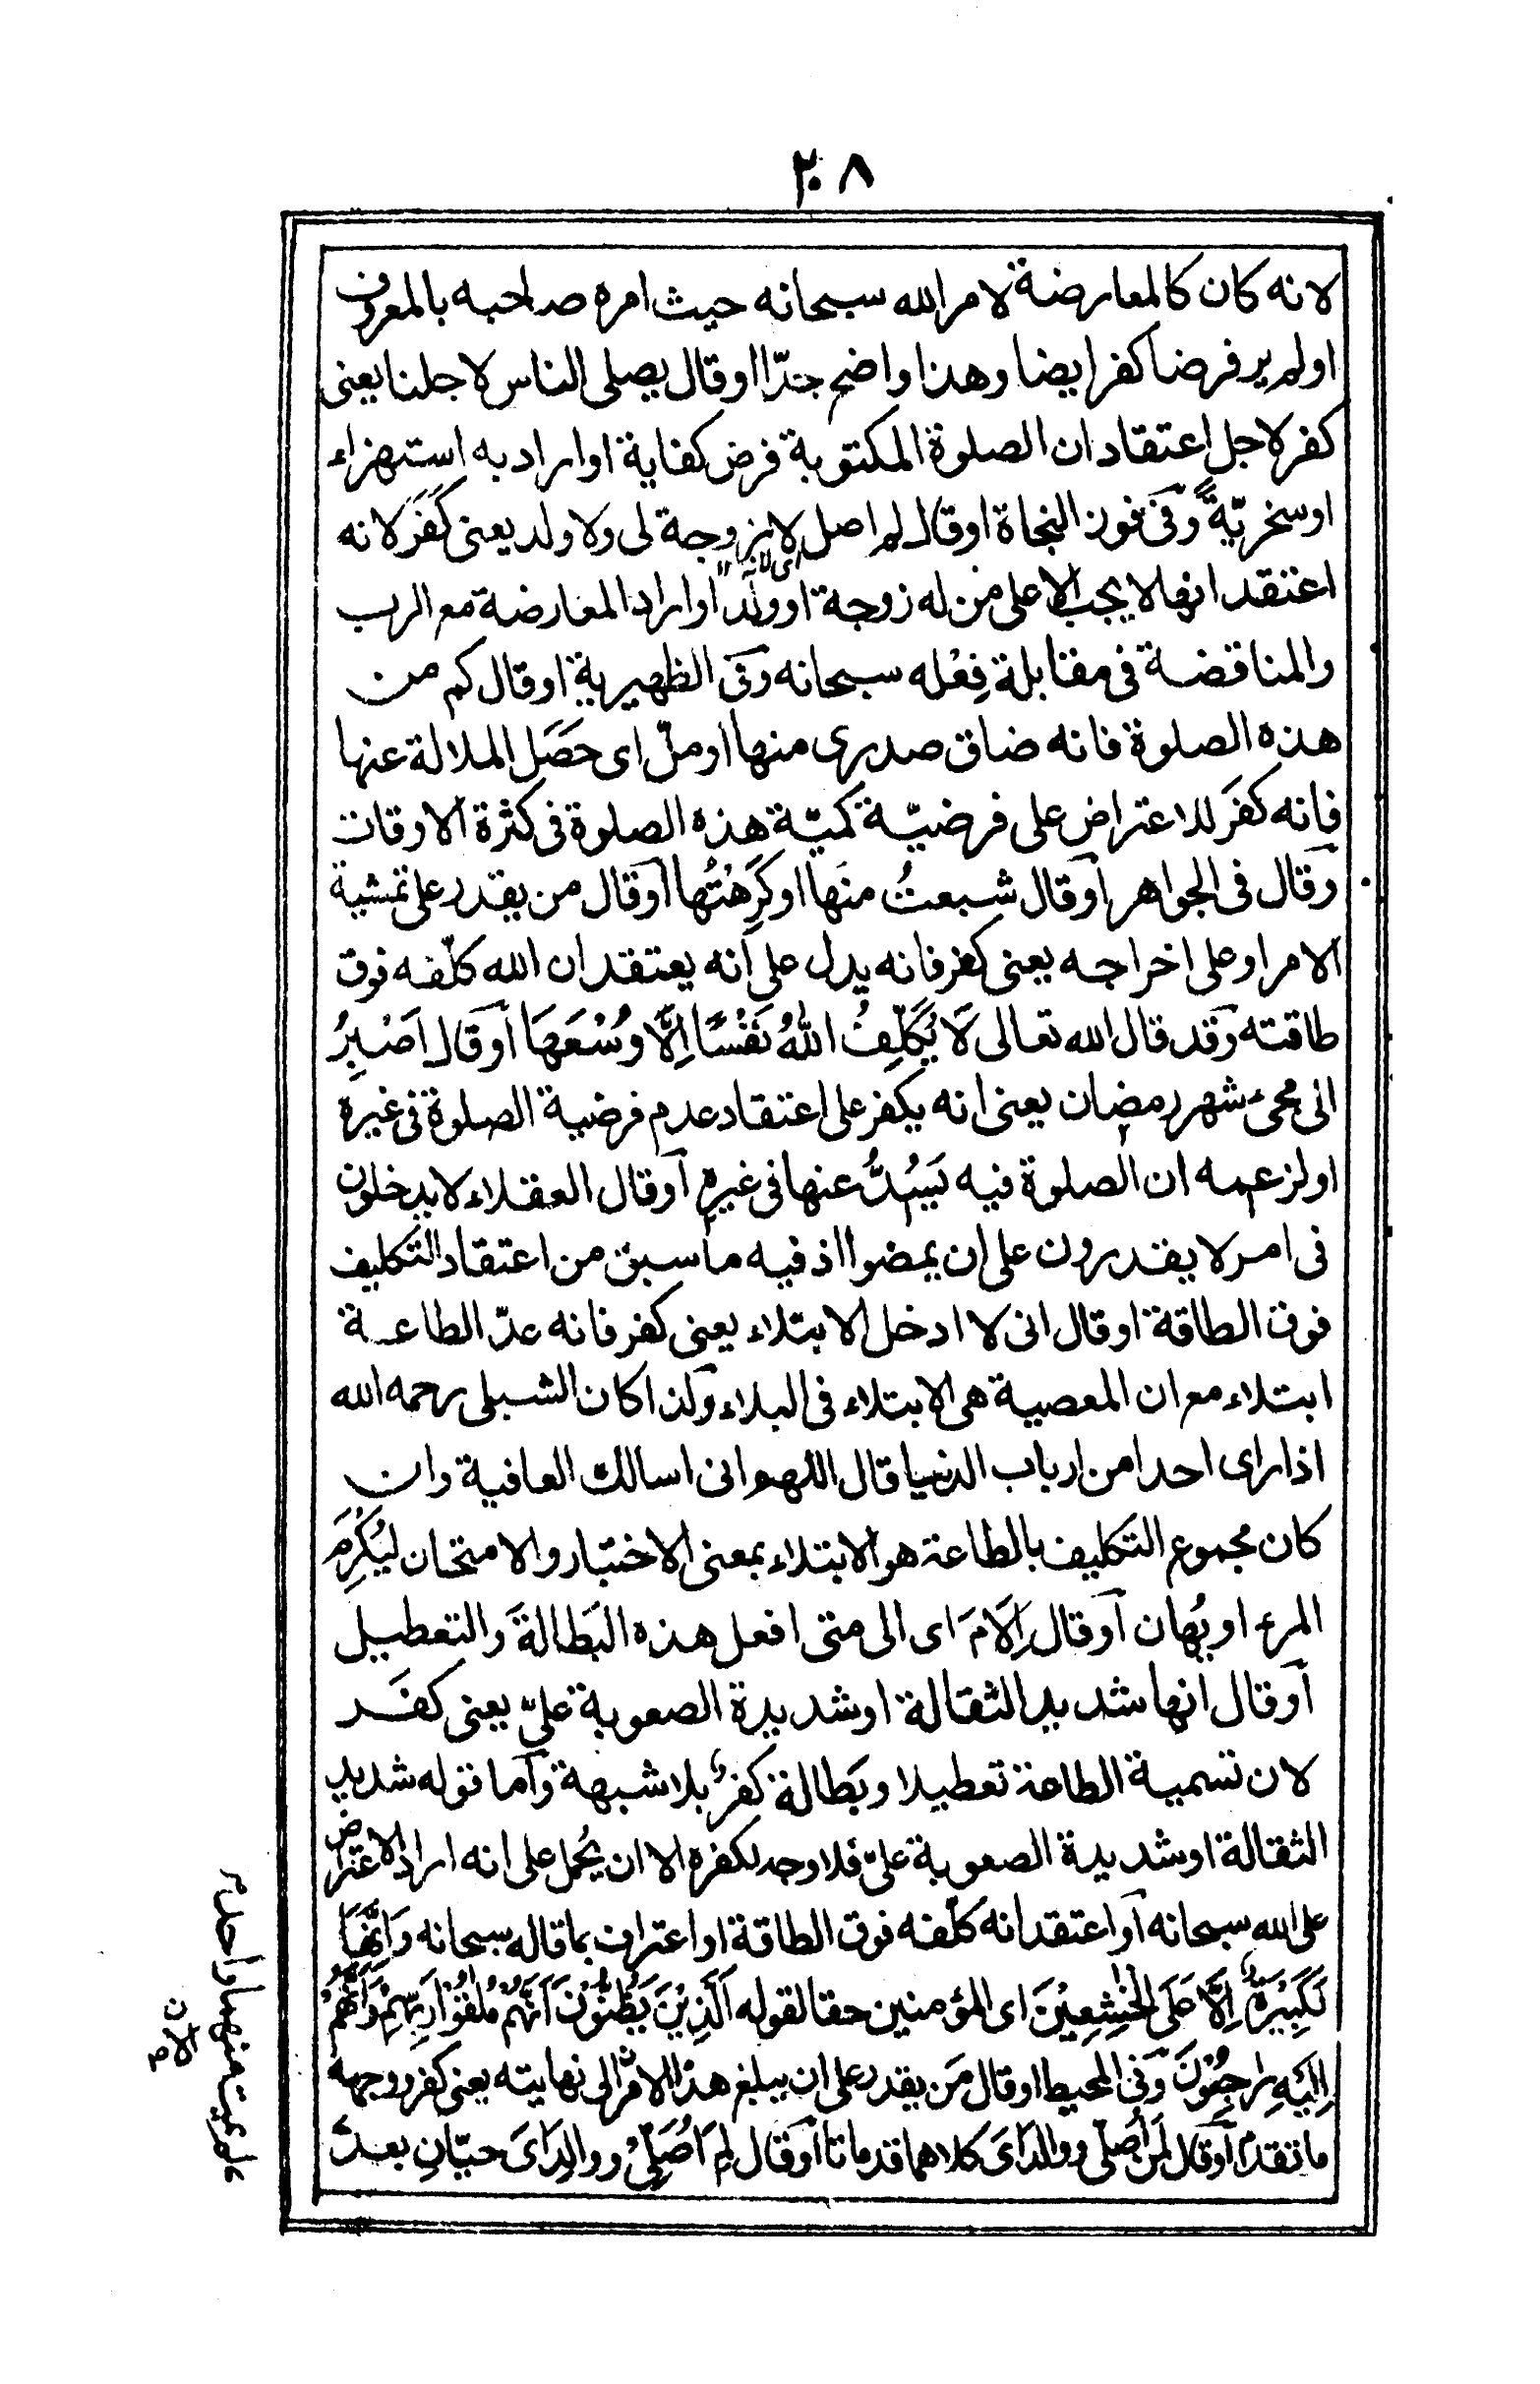 ٢٠٨
لانه كان كالمعارضة لامر الله سبحانه حيث امره صاحبه بالمعروف
اولم ير فرضا كفر ايضا وهذا واضح جدّا اوقال يصلى الناس لاجلنا يعنى
كفر لاجل اعتقاد ان الصلوة المكتوبة فرض كفاية اواراد به استهزاء
اوسخريّةً وفى فوز النجاة اوقال لم اصل لا زوجة لى ولا ولد يعنى كَفَرَ لانه
اى لانه
اعتقد انها لا يجب الا على من له زوجة اوولد اواراد المعارضة مع الرب
والمناقضة فى مقابلة فِعْله سبحانه وفى الظهيرية اوقال كم من
هذه الصلوة فانه ضاق صدرى منها اوملّ اى حصَل الملالة عنها
فانه كفَر للاعتراض على فرضيّة كميّة هذه الصلوة فى كثرة الاوقات
وقال فى الجواهر اوقال شبعتُ منها اوكَرِهْتُها اوقال من يقدر على تمشية
الامر او على اخراجه يعنى كفر فانه يدل على انه يعتقد ان الله كلّفه فوق
طاقته وقد قال الله تعالى لَا يُكَلِّفُ اللهُ نَفْسًا اِلَّا وُسْعَهَا اوقال اَصْبِرُ
الى مجئ شهر رمضان يعنى انه يكفر على اعتقاد عدم فرضية الصلوة فى غيره
اولزعمه ان الصلوة فيه يَسُدُّ عنها فى غيرهٖ اوقال العقلاء لا يدخلون
فى امر لا يقدرون على ان يمضوا اذ فيه ما سبق من اعتقاد التكليف
فوق الطاقة اوقال انى لا ادخل الابتلاء يعنى كفر فانه عدّ الطاعة
ابتلاء مع ان المعصية هى الابتلاء فى البلاء ولذا كان الشبلى رحمه الله
اذا راى احدا من ارباب الدنيا قال اللهم انى اسالك العافية وان
كان مجموع التكليف بالطاعة هو الابتلاء بمعنى الاختبار والامتحان ليُكرِمَ
المرء اويُهان اوقال اِلَامَ اى الى متى افعل هذه البَطالةَ والتعطيل
اوقال انها شديد الثقالة اوشديدة الصعوبة علىّ يعنى كفَر
لان تسمية الطاعة تعطيلا وبَطالة كفرٌ بلا شبهة واما قوله شديد
الثقالة اوشديدة الصعوبة علىّ فلا وجه لكفره الا ان يُحمل على انه اراد الاعتراض
على الله سبحانه اواعتقد انه كلّفه فوق الطاقة او اعتراف بما قاله سبحانه وَاِنَّهَا
لَكَبِيْرَةٌ اِلَّا عَلَى الْخٰشِعِيْنَ اى المؤمنين حقا لقوله اَلَّذِيْنَ يَظُنُّوْنَ اَنَّهُمْ مُلٰقُوْا رَبِّهِمْ وَاَنَّهُمْ
اِلَيْهِ رٰجِعُوْنَ وفى المحيط اوقال مَن يقدر على ان يبلغ هذا الامر الى نهايته يعنى كفر ووجهه
ما تقدم اوقال لمن اُصلّى ووالداىَ كلاهما قد ماتا اوقال لِمَ اُصَلِّىْ ووالداىَ حيّانِ بعدُ